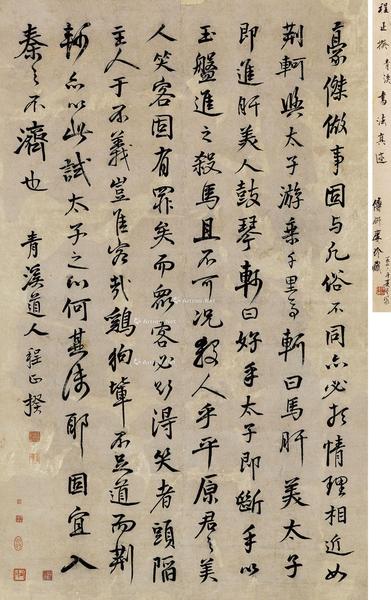 豪傑做事固与凡俗不同亦必於情理相近如
荆軻與太子游乘千里馬軻曰馬肝美太子
即進肝美人鼓琴軻曰好手太子即斷手以
玉盤進之殺馬且不可况殺人乎平原君之美
人笑客固有罪矣而眾客必欲得笑者頭陷
主人于不義豈佳客哉鷄狗輩不足道而荆
軻亦以此試太子之以何其淺耶固宜入
秦之不濟也 青溪道人程正揆
程正揆青溪書法真迹